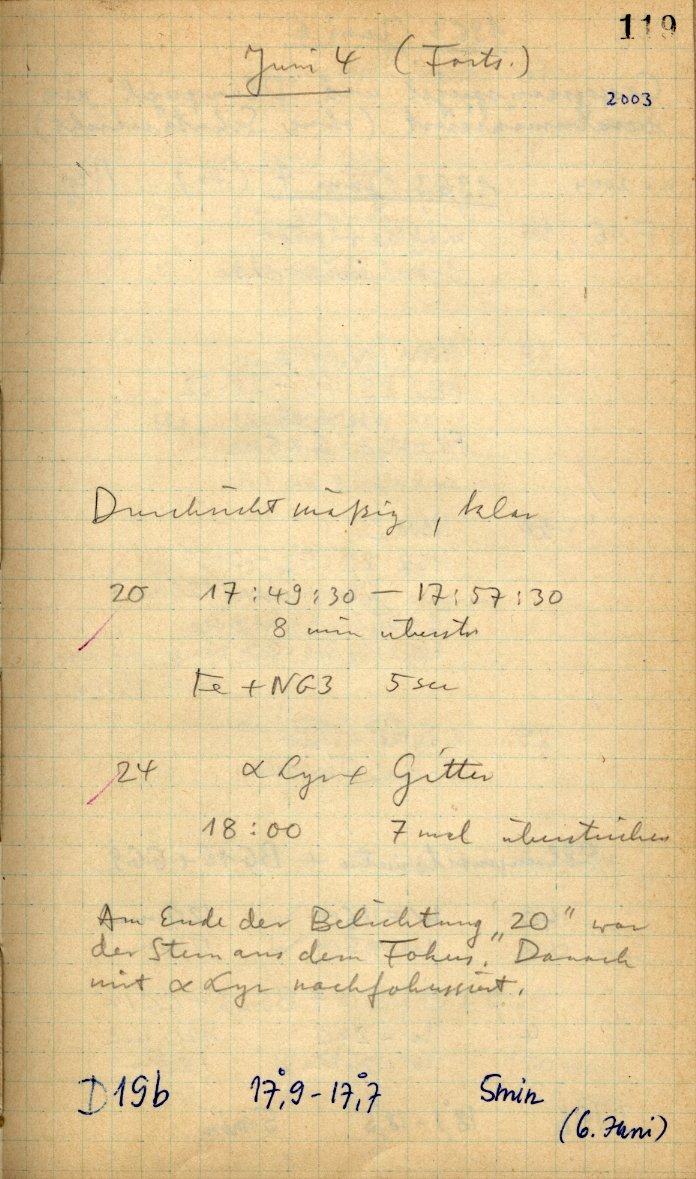 119
Juni 4 (Forts.)
2003
Durchsicht mäßig, klar
20 17:49:30 — 17:57:30
8 min überstr
Fe + NG3 5 sec
24 α Lyr Gitter
18:00 7 mal überstrichen
Am Ende der Belichtung „20“ war
der Stern aus dem Fokus. Danach
mit α Lyr nachfokussiert.
D19b 17°,9 - 17°,7 5min
(6. Juni)